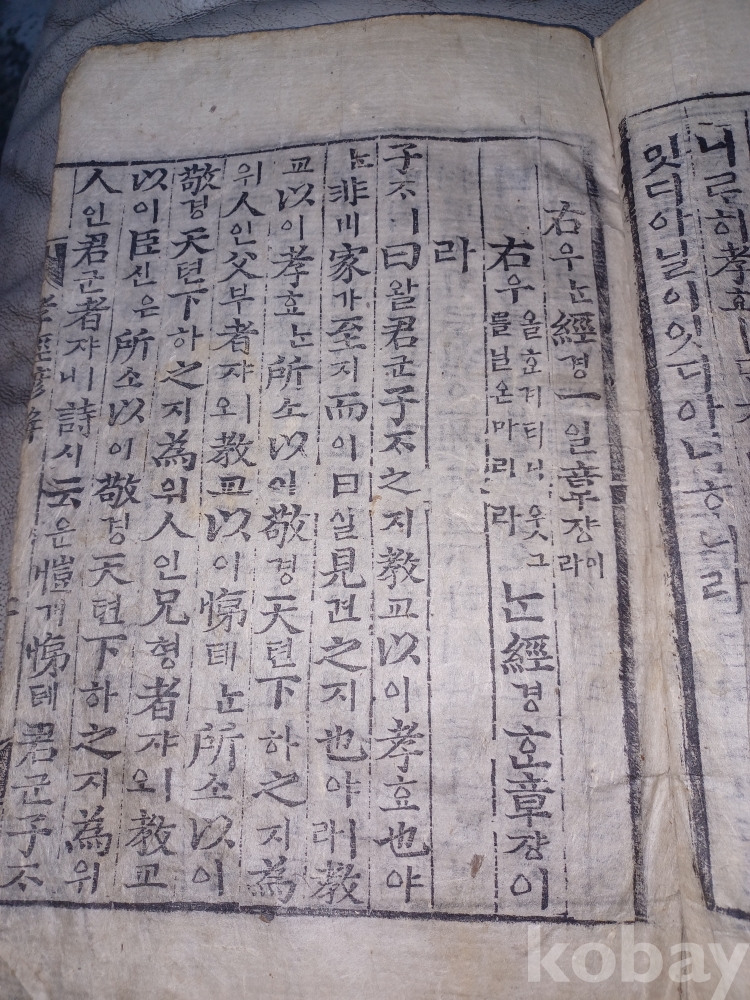 니르히孝효ㅣ
밋디아닐이잇디아닌ᄒᆞ니라
右우ᄂᆞᆫ經경一일章쟝이라
右우 올ᄒᆞᆫ겨틔니웃그
를닐온마리라 ᄂᆞᆫ經경ᄒᆞᆫ章쟝이
라
子ᄌᆞㅣ曰왈君군子ᄌᆞ之지教교以이孝효也야
ᄂᆞᆫ非비家가至지而이日일見견之지也야ㅣ라教
교以이孝효ᄂᆞᆫ所소以이敬경天텬下하之지為
위人인父부者쟈ㅣ오教교以이悌뎨ᄂᆞᆫ所소以이
敬경天텬下하之지為위人인兄형者쟈ㅣ오教교
以이臣신은所소以이敬경天텬下하之지為위
人인君군者쟈ㅣ니詩시云운愷개悌뎨君군子ᄌᆞ
孝經諺解
kobay